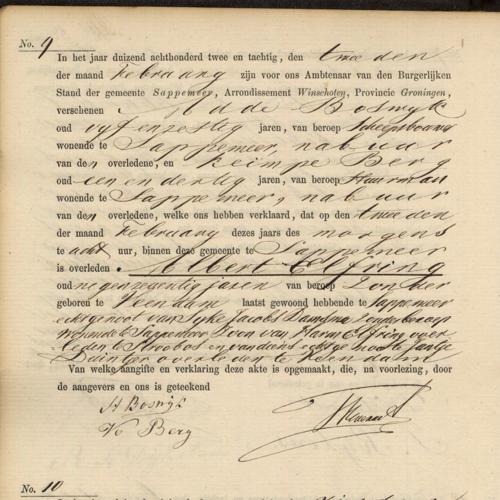 No. 9
In het jaar duizend achthonderd twee en tachtig, den tweeden
der maand Februarij zijn voor ons Ambtenaar van den Burgerlijken
Stand der gemeente Sappemeer, Arrondissement Winschoten, Provincie Groningen,
verschenen Bosnijk
oud vijfenzestig jaren, van beroep
wonende te Sappemeer, nabuur
van den overledene, en Keimpe Berg
oud eenendertig jaren, van beroep
wonende te Sappemeer, nabuur
van den overledene, welke ons hebben verklaard, dat op den tweeden
der maand Februarij dezes jaars des morgens
te acht uur, binnen deze gemeente te Sappemeer
is overleden Albert Elfring
oud negenzeventig jaren van beroep zonder
geboren te Veendam laatst gewoond hebbende te Sappemeer
echtgenoot van Jacobs zonder beroep
wonende te Sappemeer Zoon van Harm Elfring
en van
overleden te Veendam
Van welke aangifte en verklaring deze akte is opgemaakt, die, na voorlezing, door
de aangevers en ons is geteekend
Bosnijk
K Berg
No. 10